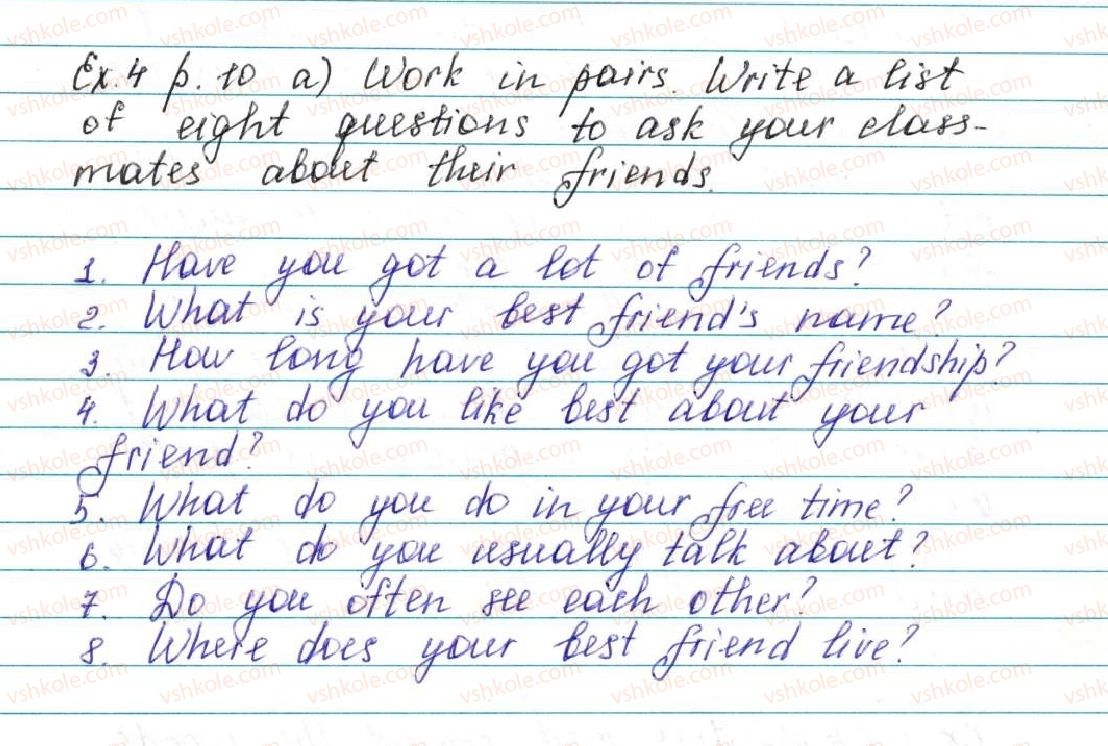 Ex.4 p. 10 a) Work in pairs. Write a list
of eight questions to ask your class-
mates about their friends.
1. Have you got a lot of friends?
2. What is your best friend's name?
3. How long have you got your friendship?
4. What do you like best about your
friend?
5. What do you do in your free time?
6. What do you usually talk about?
7. Do you often see each other?
8. Where does your best friend live?
vshkole.com